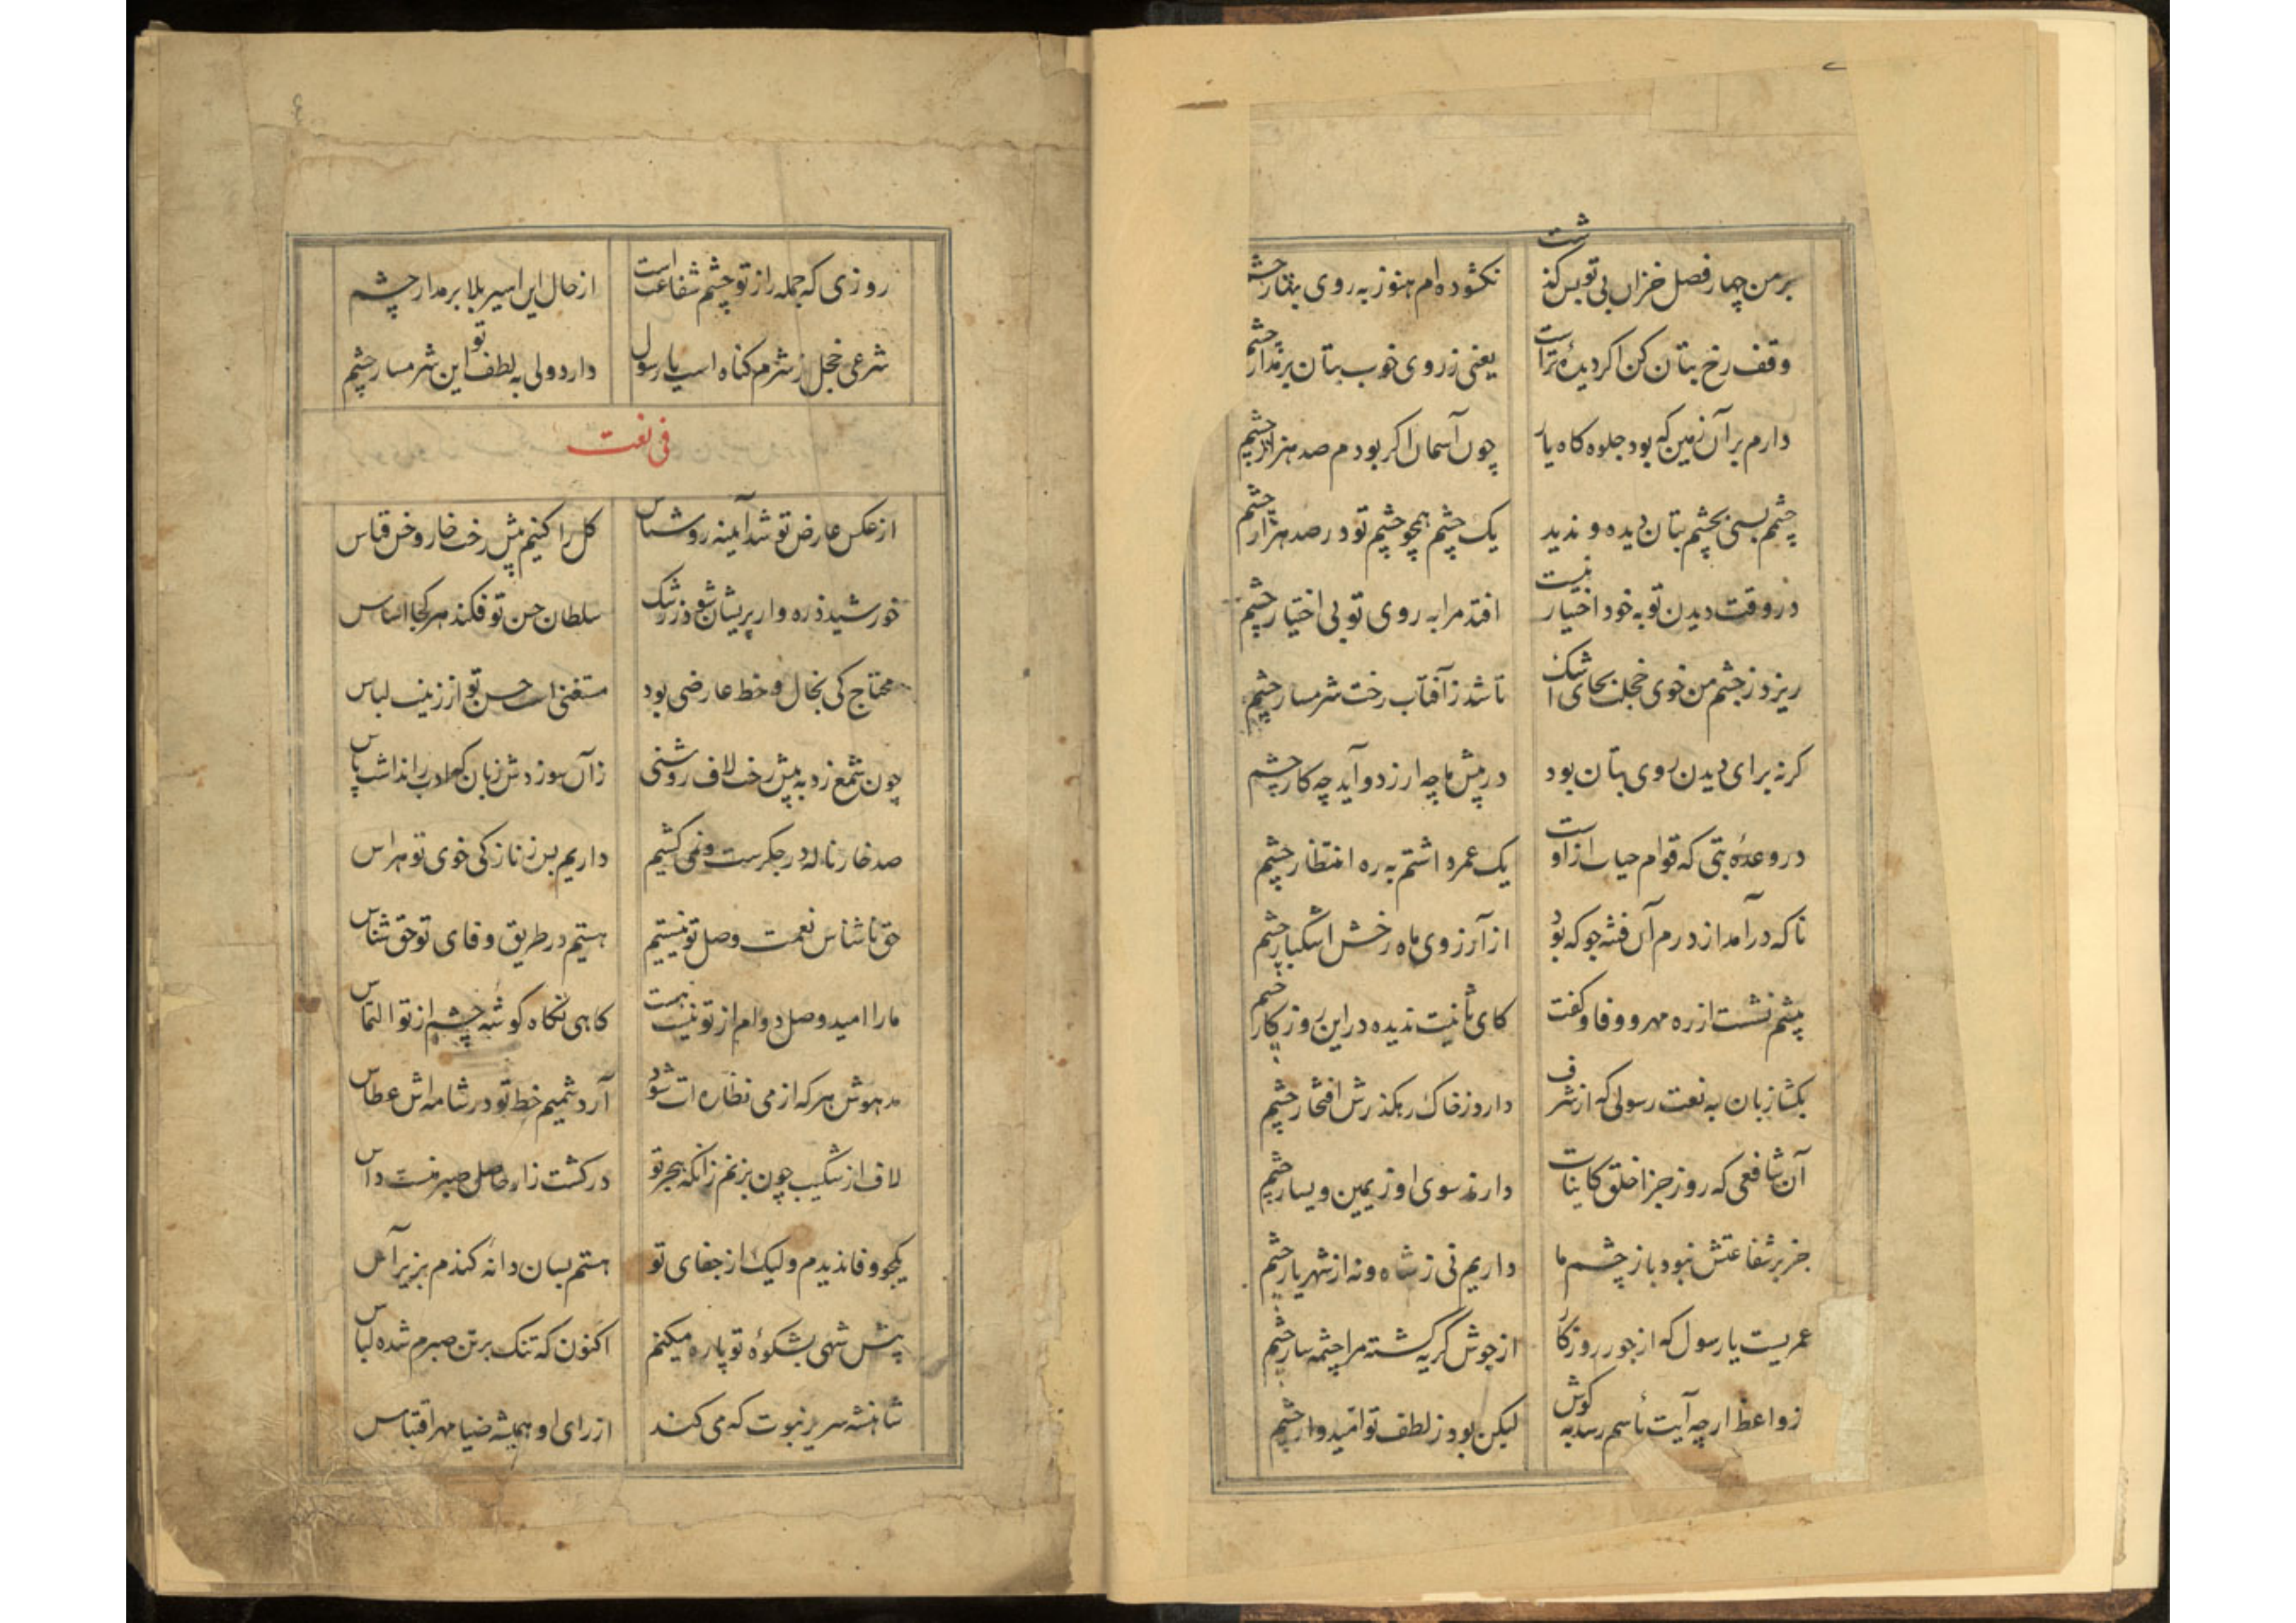 بر من چهار فصل خزان بی تو بس گذشت
نگشوده ام هنوز به روی بهار چشم
وقف رخ بتان کن اگر دیدهٔ تراست
یعنی ز روی خوب بتان بر مدار چشم
دارم بر آن زمین که بود جلوه گاه یار
چون آسمان اگر بودم صد هزار چشم
چشم بسی بچشم بتان دیده و ندید
یک چشم همچو چشم تو در صد هزار چشم
در وقت دیدن تو به خود اختیار نیست
افتد مرا به روی تو بی اختیار چشم
ریزد ز چشم من خوی خجلت بجای اشک
تا شد ز آفتاب رخت شرمسار چشم
گر نه برای دیدن روی بتان بود
در پیش ما چه ارزد و آید چه کار چشم
در وعدهٔ بتی که قوام حیات ازاوست
یک عمر داشتم به ره انتظار چشم
ناگه درآمد از درم آن فتنه جو که بود
از آرزوی ماه رخش اشکبار چشم
پیشم نشست از ره مهر و وفا و گفت
کای ثانیت ندیده در این روزگار چشم
بگشا زبان به نعت رسولی که از شرف
دارد ز خاک رهگذرش افتخار چشم
آن شافعی که روز جزا خلق کاینات
دارند سوی او ز یمین و یسار چشم
جز بر شفاعتش نبود باز چشم ما
داریم نی ز شاه و نه از شهریار چشم
عمریست یا رسول که از جور روزگار
از جوش گریه گشته مرا چشمه سار چشم
زواعظ ار چه آیت یأسم رسد به گوش
لیکن بود ز لطف تو امیدوار چشم
روزی که جمله را ز تو چشم شفاعت است
از حال این اسیر بلا بر مدار چشم
شرعی خجل ز شرم گناه است یا رسول
دارد ولی به لطف تو این شرمسار چشم
فی نعت
از عکس عارض تو شد آیینه روشناس
گل را کنیم پیش رخت خار و خس قیاس
خورشید ذره وار پریشان شود ز رشک
سلطان حسن تو فکند هر کجا اساس
محتاج کی بخال و خط عارضی بود
مستغنی است حسن تو از زینت لباس
چون شمع زد به پیش رخت لاف روشنی
زآن سوزدش زبان که ادب را نداشت پاس
صد خار ناله در جگرست و نمی کشیم
داریم بس ز نازکی خوی تو هراس
حق ناشناس نعمت وصل تو نیستیم
هستیم در طریق وفای تو حق شناس
ما را امید وصل دوام از تو نیست نیست
گاهی نگاه گوشه چشم از تو التماس
مدهوش هر که از می نظاره ات شود
آرد شمیم خط تو در شامه اش عطاس
لاف از شکیب چون بزنم زانکه هجر تو
در کشت زار حاصل صبر منست داس
یکجو وفا ندیدم و لیک از جفای تو
هستم بسان دانه گندم بزیر آس
پیش شهی بشکوهٔ تو پاره میکنم
اکنون که تنگ بر تن صبرم شده لباس
شاهنشه سریر نبوت که می کند
از رای او همیشه ضیا مهر اقتباس